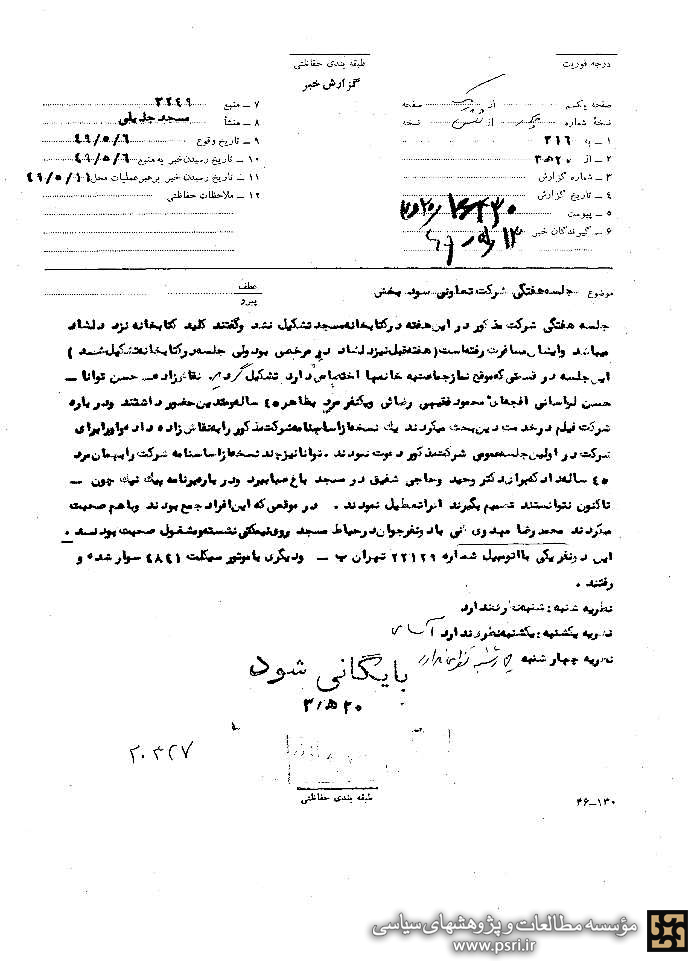 درجه فوریت
طبقه بندی حفاظتی
گزارش خبر
صفحه یکم از صفحه
نسخهٔ شماره از نسخه
۱ ـ به ۳۱۶
۲ ـ از ۲۰ه۳
۳ ـ شماره گزارش
۴ ـ تاریخ گزارش
۵ ـ پیوست
۶ ـ گیرندگان خبر
۷ ـ منبع ۳۲۴۹
۸ ـ منشأ مسجد جلیلی
۹ ـ تاریخ وقوع ۴۹/۵/۶
۱۰ ـ تاریخ رسیدن خبر به منبع ۴۹/۵/۶
۱۱ ـ تاریخ رسیدن خبر برهبر عملیات محل ۴۹/۵/۱۱
۱۲ ـ ملاحظات حفاظتی
موضوع جلسه هفتگی شرکت تعاونی سود بخش
عطف
پیرو
جلسه هفتگی شرکت مذکور در این هفته در کتابخانه مسجد تشکیل نشد وگفتند کلید کتابخانه نزد دلشاد
میباشد وایشان مسافرت رفته است (هفته قبل نیز دلشاد در مرخصی بود ولی جلسه در کتابخانه تشکیل شد )
این جلسه در قسمتی که موقع نماز جماعت به خانمها اختصاص دارد تشکیل گردید نقاش زاده ـ حسن توانا ـ
حسن لواسانی محمود فقیهی رضائی ویکنفر مرد بظاهر ۴۵ ساله متدین حضور داشتند ودر باره
شرکت فیلم در خدمت دین بحث میکردند یک نسخه از اساسنامه شرکت مذکور را به نقاش زاده داد واورا برای
شرکت در اولین جلسه عمومی شرکت مذکور دعوت نمودند . توانا نیز چند نسخه از اساسنامه شرکت را بهمان مرد
۴۵ ساله داد که برای دکتر وحید وحاجی شفیق در مسجد باغ صبا ببرد ودر باره برنامه پیک نیک چون ـ
تاکنون نتوانستند تصمیم بگیرند آنرا تعطیل نمودند . در موقعی که این افراد جمع بودند وباهم صحبت
میکردند محمد رضا مهدوی کنی با دو نفر جوان در حیاط مسجد روی نیمکتی نشسته ومشغول صحبت بودند .
این دو نفر یکی با اتومبیل شماره ۲۲۱۲۹ تهران ب ـ ودیگری با موتور سیکلت ۴۸۴۱ سوار شده و
رفتند .
نظریه شنبه : شنبه نظری ندارد
نظریه یکشنبه : یکشنبه نظری ندارد
نظریه چهار شنبه چهارشنبه نظری ندارد
بایگانی شود
۲۰ه۳
۲۰۳۲۷
طبقه بندی حفاظتی
۴۶ـ۱۳۰
مؤسسه مطالعات و پژوهشهای سیاسی
www.psri.ir